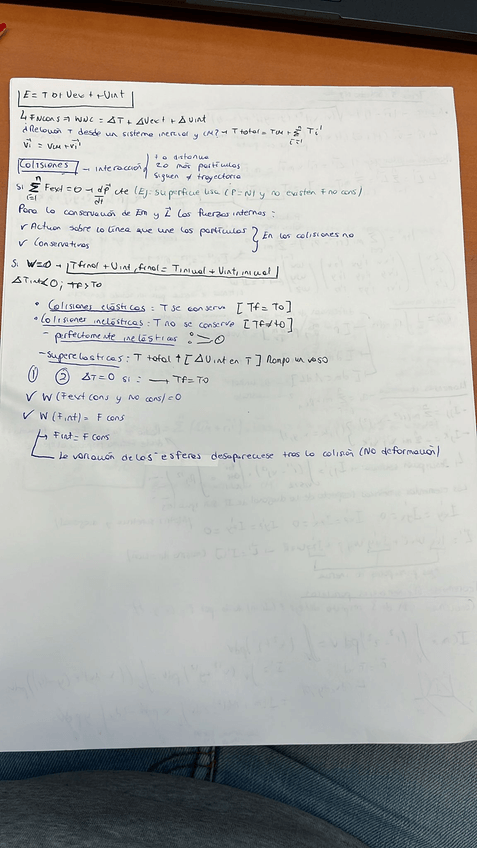 E = T0 + Uext + Uint
↳ FNcons → WNC = ΔT + ΔUext + ΔUint
¿Relación T desde un sistema inercial y CM? → T total = TCM + Σ Ti'
n
i=1
vi = vCM + vi'
Colisiones → interacción
+ o instantánea
2 o más partículas
siguen ≠ trayectoria
Si Σ Fext = 0 → dp/dt cte (Ej: superficie lisa (P=N) y no existen F no cons)
n
i=1
Para la conservación de Em y L las fuerzas internas:
✓ Actúan sobre la línea que une las partículas
✓ Conservativas
} En las colisiones no
Si W=0 → Tfinal + Uint, final = Tinicial + Uint, inicial
ΔTint<0; Tf>T0
• Colisiones elásticas: T se conserva [Tf = T0]
• Colisiones inelásticas: T no se conserva [Tf≠T0]
- perfectamente inelásticas
- Superelásticas: T total ↑ [ΔUint en T] Rompo un vaso
① ② ΔT=0 si: → Tf=T0
✓ W (Fext cons y no cons)=0
✓ W (Fint) = F cons
→ Fint = F cons
La variación de las esferas desapareciese tras la colisión (NO deformación)